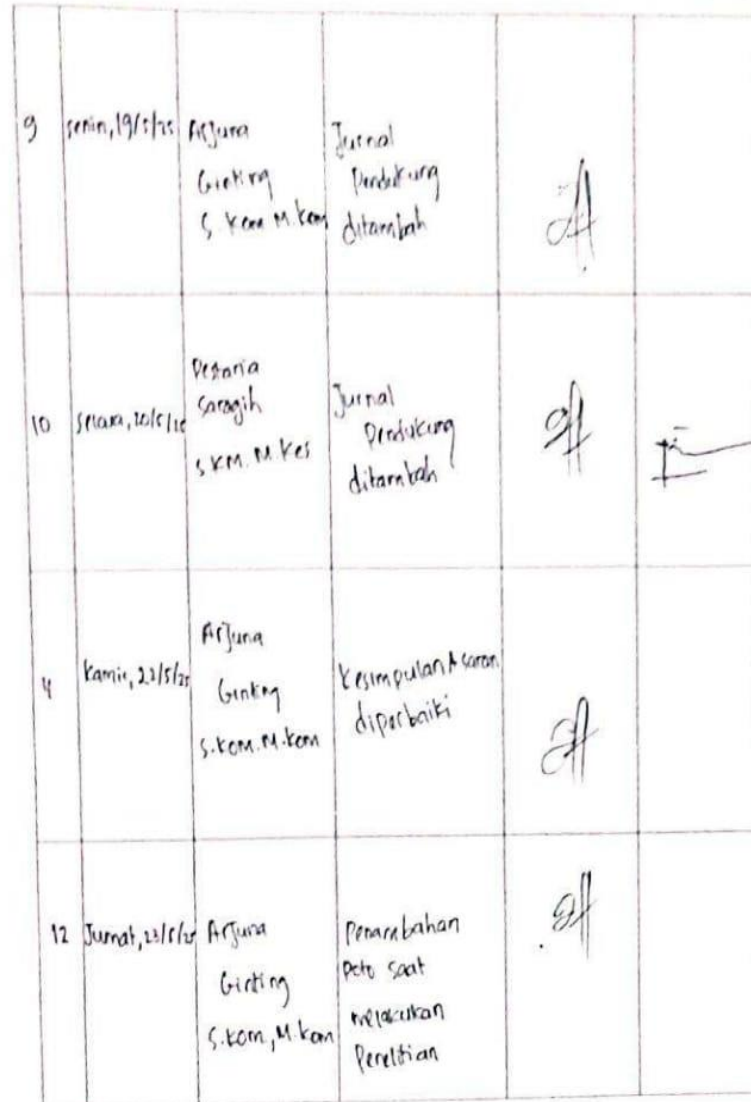 9
senin, 19/5/25
Arjuna
Ginting
S. Kom M. Kom
Jurnal
Pendukung
ditambah
10
selasa, 20/5/25
Pestaria
Saragih
SKM. M. Kes
Jurnal
Pendukung
ditambah
11
Kamis, 22/5/25
Arjuna
Ginting
S. Kom. M. Kom
Kesimpulan & saran
diperbaiki
12
Jumat, 23/5/25
Arjuna
Ginting
S. Kom, M. Kom
Penambahan
Poto saat
melakukan
Penelitian